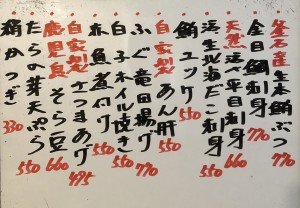 釜石産 生本鮪ぶつ 770
金目鯛刺身 770
天然 活〆平目刺身 660
浜生北海だこ刺身 550
鮪ユッケ 550
自家製 あん肝 770
ふぐ竜田揚げ 770
白子ホイル焼き 550
赤魚煮付け 550
自家製 さつまあげ 495
鹿児島 そら豆 660
たらの芽天ぷら 550
絹かつぎ 330